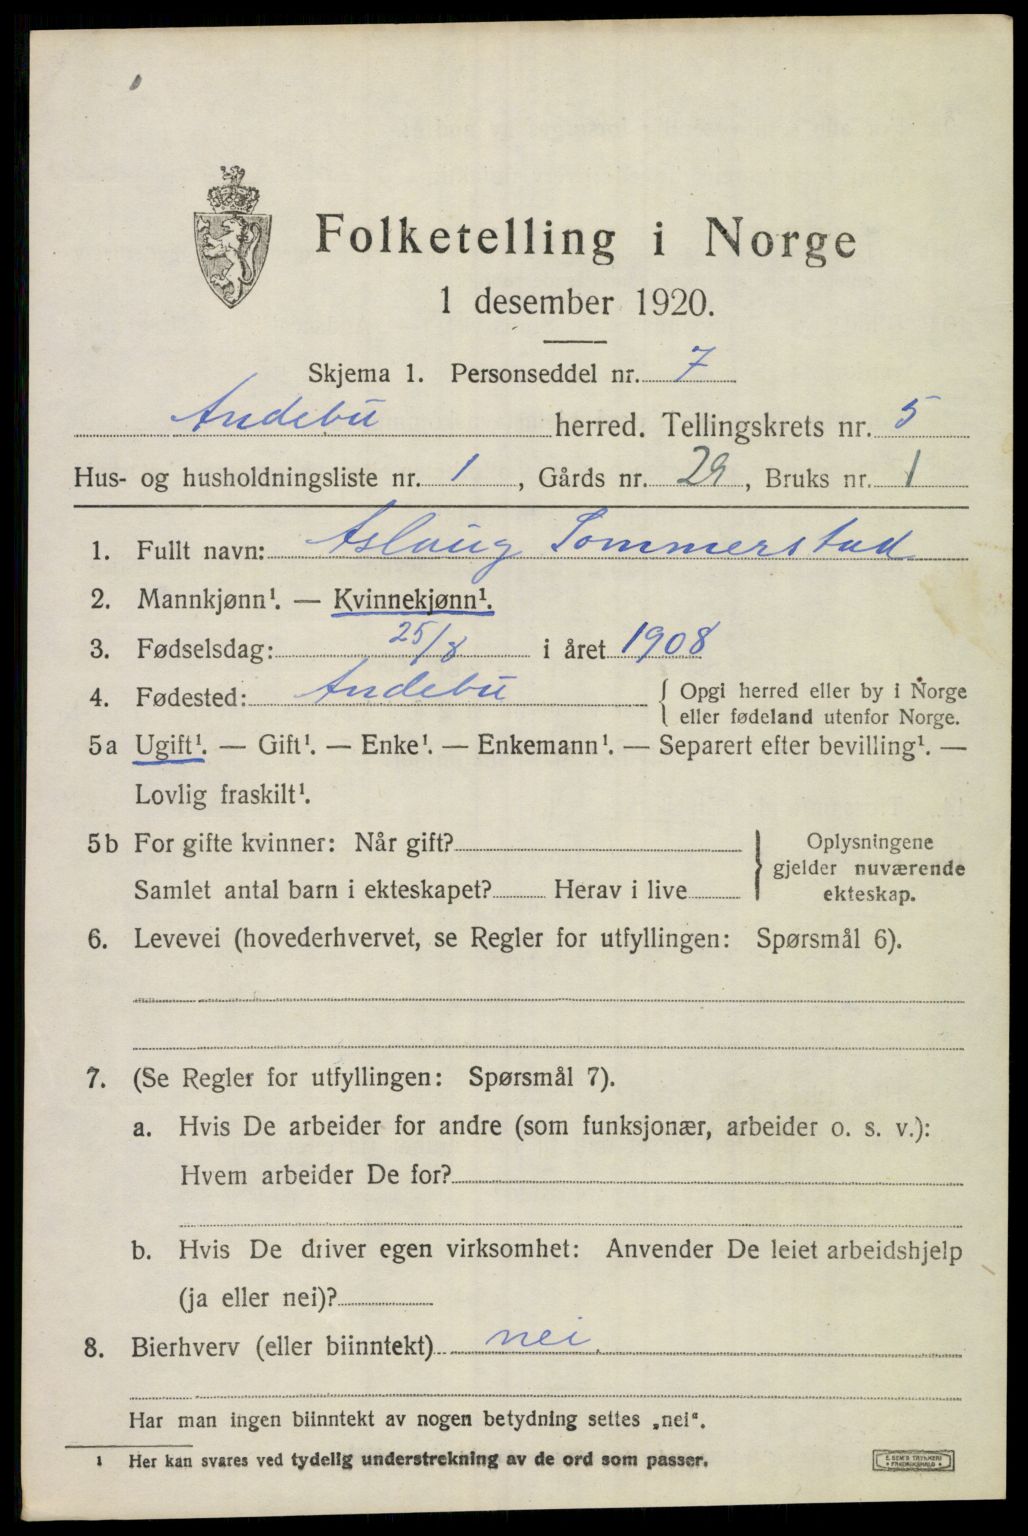 Folketelling i Norge
1 desember 1920.
Skjema 1. Personseddel nr. 7
Andebu herred. Tellingskrets nr. 5
Hus- og husholdningsliste nr. 1, Gårds nr. 29, Bruks nr. 1
1. Fullt navn: Aslaug Sommerstad
2. Mannkjønn¹. — Kvinnekjønn¹.
3. Fødselsdag: 25/8 i året 1908
4. Fødested: Andebu { Opgi herred eller by i Norge
eller fødeland utenfor Norge.
5a Ugift¹. — Gift¹. — Enke¹. — Enkemann¹. — Separert efter bevilling¹. —
Lovlig fraskilt¹.
5b For gifte kvinner: Når gift? } Oplysningene
gjelder nuværende
Samlet antal barn i ekteskapet? Herav i live ekteskap.
6. Levevei (hovederhvervet, se Regler for utfyllingen: Spørsmål 6).
7. (Se Regler for utfyllingen: Spørsmål 7).
a. Hvis De arbeider for andre (som funksjonær, arbeider o. s. v.):
Hvem arbeider De for?
b. Hvis De driver egen virksomhet: Anvender De leiet arbeidshjelp
(ja eller nei)?
8. Bierhverv (eller biinntekt) nei.
Har man ingen biinntekt av nogen betydning settes „nei“.
¹ Her kan svares ved tydelig understrekning av de ord som passer.
E. SEM'S TRYKKERI
FREDRIKSHALD